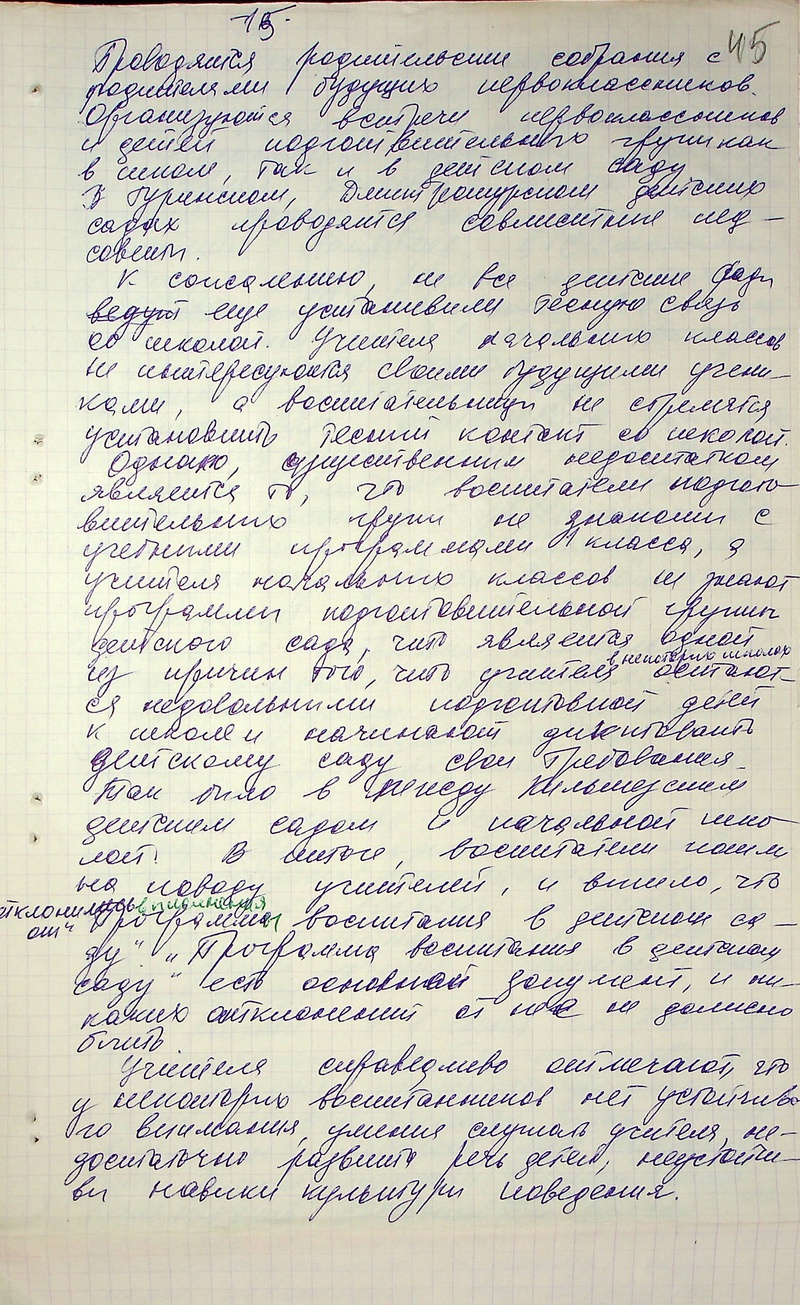 -15-
45
Проводятся родительские собрания с
родителями будущих первоклассников.
Организуются встречи первоклассников
и детей подготовительных групп как
в школе, так и в детском саду
В Гуринском, Дмитрошурском детских
садах проводятся совместные пед-
советы.
К сожалению, не все детские сады
ведут еще установили тесную связь
со школой. Учителя начальных классов
не интересуются своими будущими учени-
ками, а воспитательницы не стремятся
установить тесный контакт со школой.
Однако, существенным недостатком
является то, что воспитатели подгото-
вительных групп не знакомы с
учебными программами 1 класса, а
учителя начальных классов не знают
программы подготовительной группы
детского сада, что является одной
в некоторых школах
из причин того, что учителя остают-
ся недовольными подготовкой детей
к школе и начинают диктовать
детскому саду свои требования.
Так было в между Кильмезским
детским садом и начальной шко-
лой. В итоге, воспитатели пошли
на поводу учителей, и вышло, что
отклонились выполнения
от "Программы воспитания в детском са-
ду" "Программа воспитания в детском
саду" есть основной документ, и ни-
каких отклонений от нее не должно
быть
Учителя справедливо отмечают, что
у некоторых воспитанников нет устойчиво
го внимания, умения слушать учителя, не-
достаточно развита речь детей, неустойчи-
вы навыки культуры поведения.